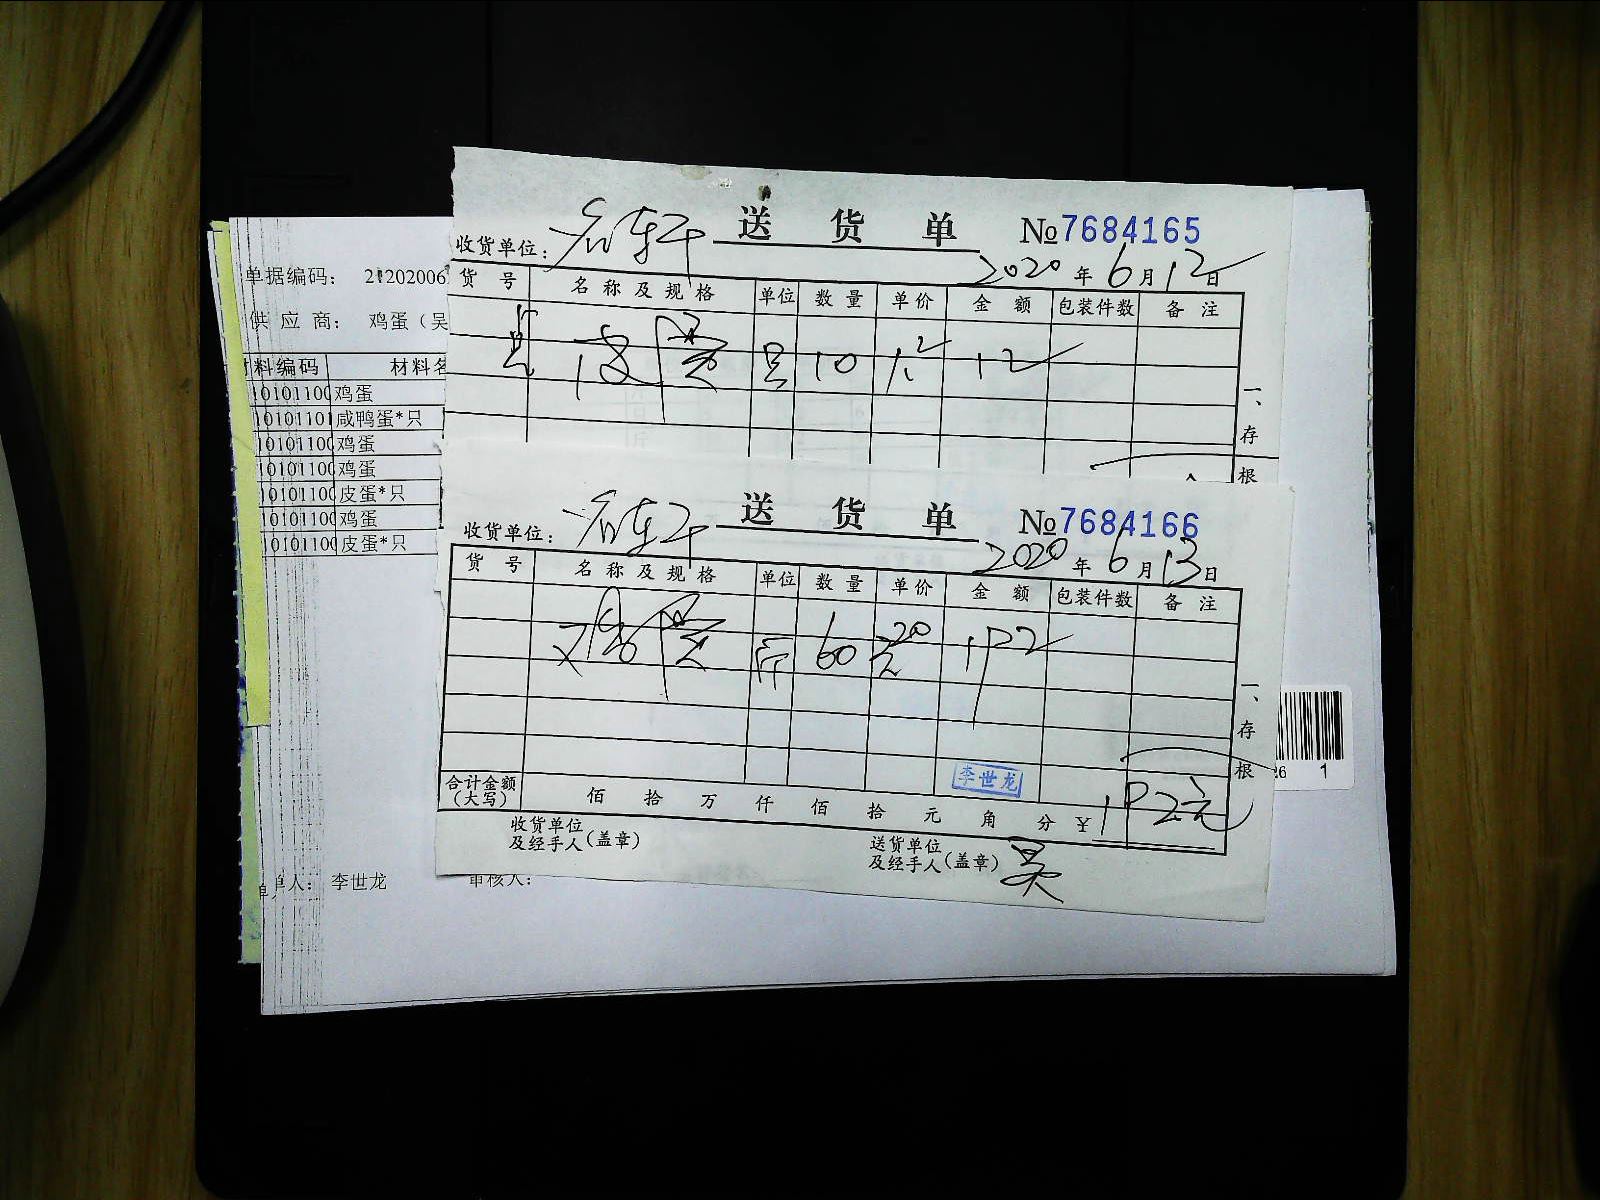 单据编码： 21202006
供 应 商： 鸡蛋（吴
材料编码 材料名
1010110 鸡蛋
10101101 咸鸭蛋*只
1010110 鸡蛋
1010110 鸡蛋
1010110 皮蛋*只
1010110 鸡蛋
1010110 皮蛋*只
单人： 李世龙 审核人：
送 货 单 №7684165
收货单位：
2020 年 6 月 12 日
货 号 名 称 及 规 格 单位 数 量 单 价 金 额 包装件数 备 注
皮蛋 只 10 1.2 12
一、存根
送 货 单 №7684166
收货单位：
2020 年 6 月 13 日
货 号 名 称 及 规 格 单位 数 量 单 价 金 额 包装件数 备 注
鸡蛋 斤 60 3.20 192
一、存根
李世龙
合计金额（大写） 佰 拾 万 仟 佰 拾 元 角 分 ¥ 192元
收货单位及经手人（盖章） 送货单位及经手人（盖章） 吴
26 1